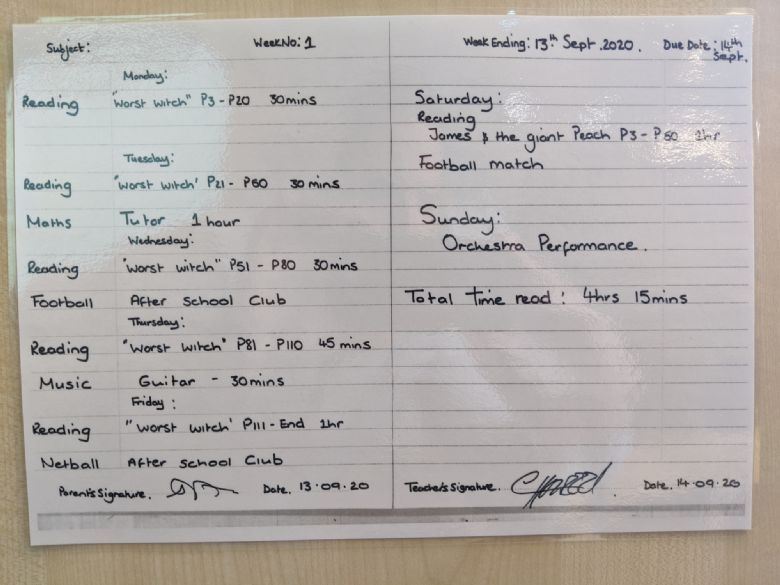 Subject: Week No: 1
Monday:
Reading "Worst Witch" P3 - P20 30mins
Tuesday:
Reading "Worst Witch' P21 - P50 30 mins
Maths Tutor 1 hour
Wednesday:
Reading "Worst Witch" P51 - P80 30mins
Football After School Club
Thursday:
Reading "Worst Witch" P81 - P110 45 mins
Music Guitar - 30mins
Friday:
Reading "Worst Witch' P111 - End 1hr
Netball After School Club
Parent's Signature. Date. 13.09.20
Week Ending: 13th Sept. 2020. Due Date: 14th
Sept.
Saturday:
Reading
James & the giant Peach P3 - P50 1hr
Football match
Sunday:
Orchestra Performance.
Total time read: 4hrs 15mins
Teacher's Signature. Date. 14.09.20